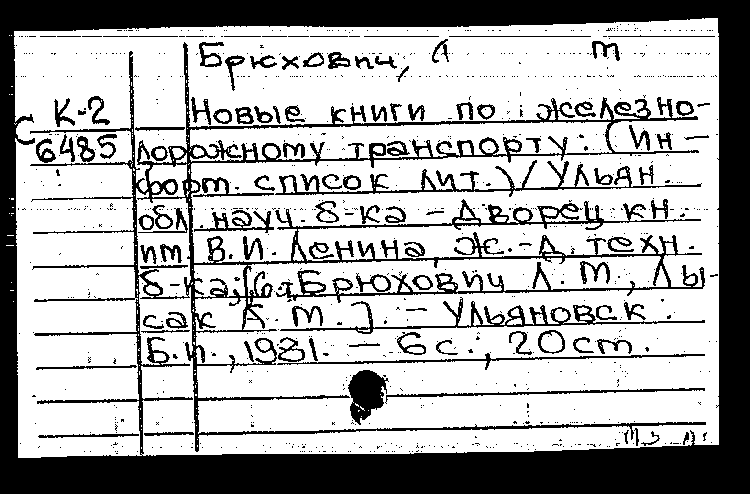 Брюхович, Л m
К-2
С 6485
Новые книги по железно-
дорожному транспорту: (Ин-
форm. список лит.) / Ульян.
обл. науч. б-ка - Дворец кн.
им. В.И. Ленина, ж.-д. техн.
б-ка; [Брюхович Л. М., Лы-
сак А. М.]. - Ульяновск:
Б.и., 1981. - 6 с.; 20 см.